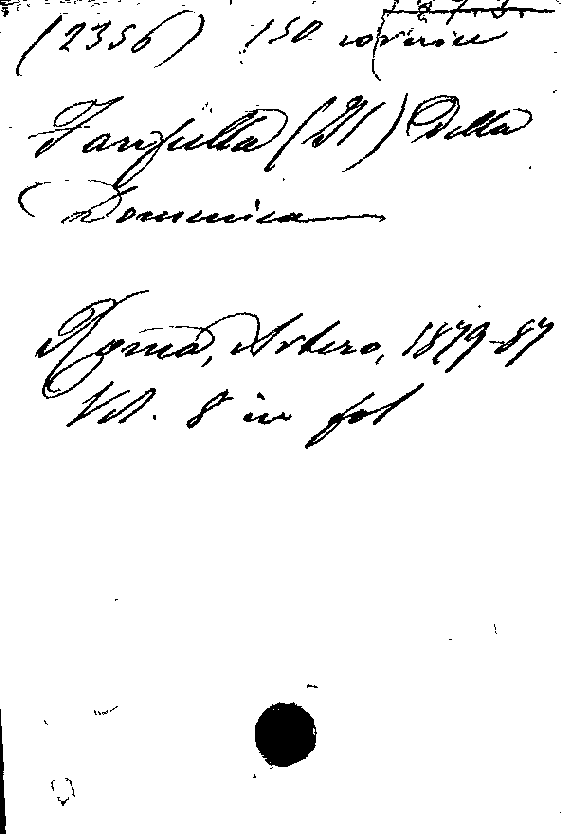 (2356) 150
Fanfulla (Il) Della
Domenica
Roma, Artero, 1879-87
Vol. 8 in fol